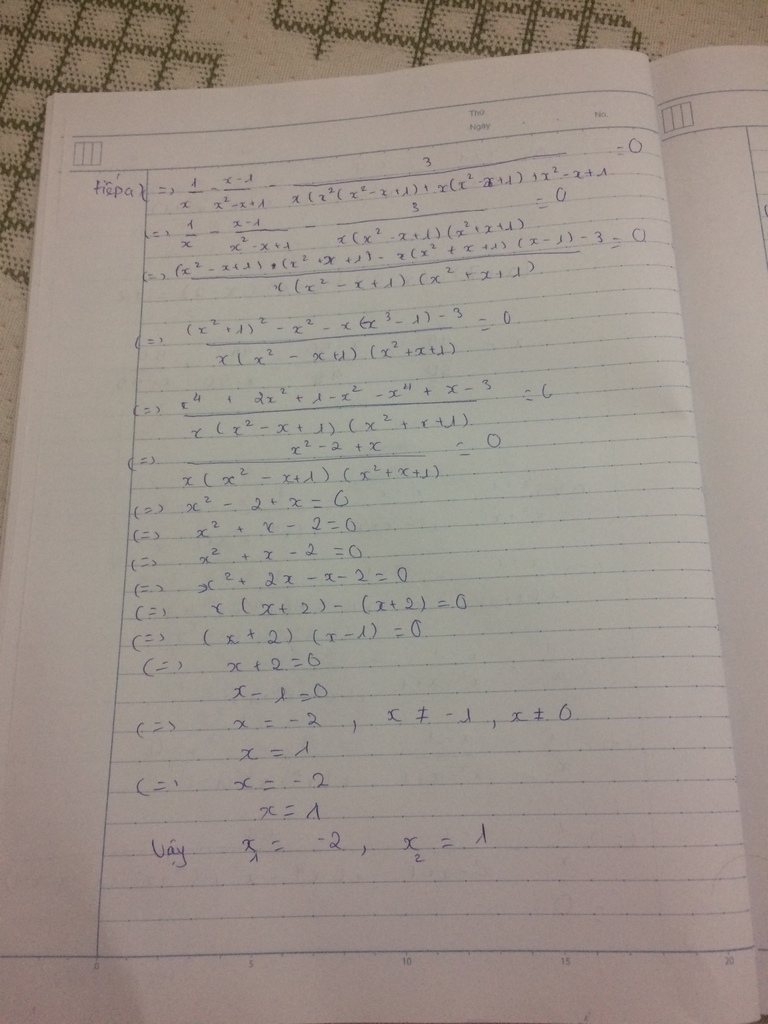 Thứ No.
Ngày
tiếp a) (=) 1/x - (x-1)/(x²-x+1) - 3/(x(x²(x²-x+1)+x(x²-x+1)+x²-x+1) = 0
(=) 1/x - (x-1)/(x²-x+1) - 3/(x(x²-x+1)(x²+x+1)) = 0
(=) ((x²-x+1).(x²+x+1) - x(x²+x+1)(x-1)-3)/(x(x²-x+1)(x²+x+1)) = 0
(=) ((x²+1)² - x² - x(x³-1)-3)/(x(x²-x+1)(x²+x+1)) = 0
(=) (x⁴ + 2x²+1-x²-x⁴+x-3)/(x(x²-x+1)(x²+x+1)) = 0
(=) (x²-2+x)/(x(x²-x+1)(x²+x+1)) = 0
(=) x² - 2 + x = 0
(=) x² + x - 2 = 0
(=) x² + x - 2 = 0
(=) x² + 2x - x - 2 = 0
(=) x(x+2) - (x+2) = 0
(=) (x+2)(x-1) = 0
(=) x+2 = 0
x-1 = 0
(=) x = -2 , x ≠ -1 , x ≠ 0
x = 1
(=) x = -2
x = 1
Vậy x₁ = -2 , x₂ = 1
0 5 10 15 20